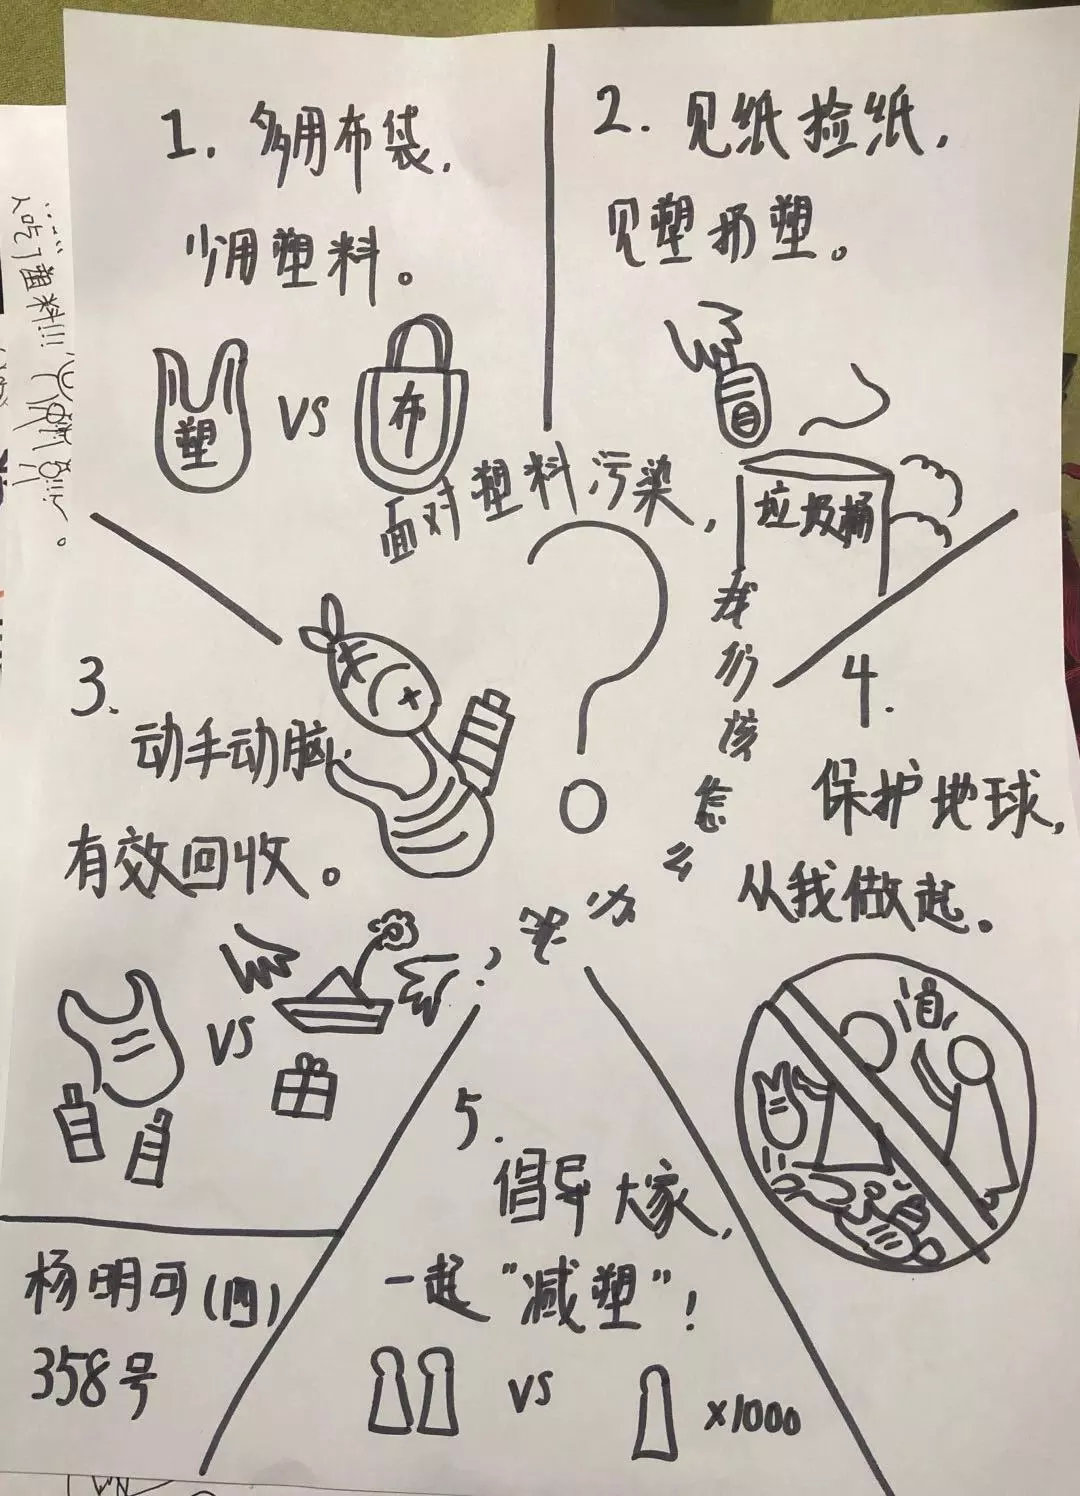 1. 多用布袋,
少用塑料。
塑 VS 布
2. 见纸捡纸,
见塑扔塑。
垃圾桶
面对塑料污染,
我们该怎么办
3.
动手动脑,
有效回收。
VS
4.
保护地球,
从我做起。
5.
倡导大家,
一起“减塑”!
VS ×1000
杨明可(四)
358号